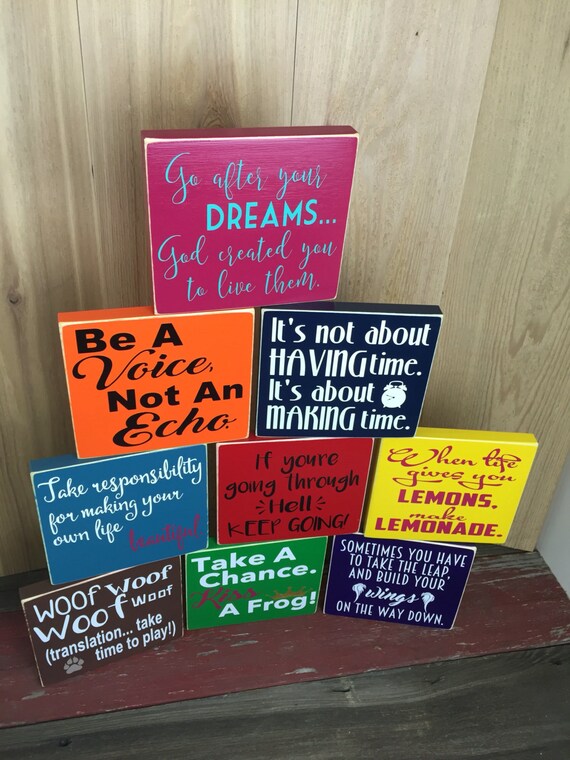 Go after your
DREAMS...
God created you
to live them.
Be A
Voice,
Not An
Echo.
It's not about
HAVING time.
It's about
MAKING time.
Take responsibility
for making your
own life beautiful
If you're
going through
Hell
KEEP GOING!
When life
gives you
LEMONS,
make
LEMONADE.
WOOF WOOF
WOOF WOOF
(translation... take
time to play!)
Take A
Chance.
Kiss
A Frog!
SOMETIMES YOU HAVE
TO TAKE THE LEAP,
AND BUILD YOUR
wings
ON THE WAY DOWN.